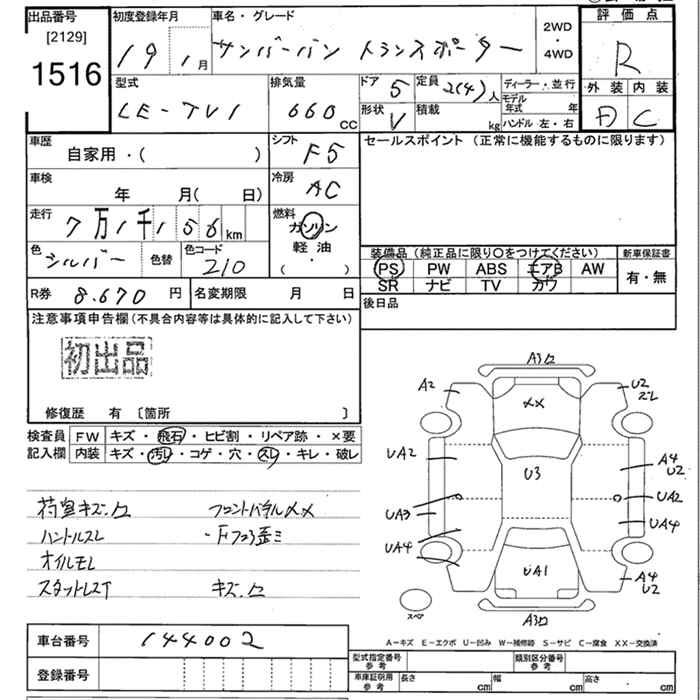 出品番号 初度登録年月 車名・グレード 評価点
[2129]
1516
19 1月 サンバーバン トランスポーター 2WD・4WD R
型式 排気量 ドア 5 定員 2(4)人 ディーラー・並行 外装 内装
LE-TV1 660cc 形状 V 積載 kg モデル年式 年 ハンドル 左・右 D C
車歴 シフト セールスポイント (正常に機能するものに限ります)
自家用・( ) F5
車検 冷房
年 月( 日) AC
走行 燃料
7万1千156km ガソリン
軽油
( ・ )
色 シルバー 色替 色コード 210
装備品 (純正品に限り〇をつけてください) 新車保証書
PS PW ABS エアB AW 有・無
SR ナビ TV カワ
R券 8.670円 名変期限 月 日 後日品
注意事項申告欄 (不具合内容等は具体的に記入して下さい)
初出品
修復歴 有 〔箇所 〕
検査員記入欄 FW キズ・飛石・ヒビ割・リペア跡・×要
内装 キズ・汚レ・コゲ・穴・スレ・キレ・破レ
荷室キズ.凹 フロントパネルXX
ハンドルスレ ・Fフロア歪ミ
オイルモレ
スタットレスT キズ.凹
A3凹
A2 XX U2
スレ
UA2 U3 A4
U2
UA3 UA2
UA4 UA4
UA1 A4
U2
スペア A3凹
A-キズ E-エクボ U-凹み W-補修跡 S-サビ C-腐食 XX-交換済
車台番号 144002
登録番号
型式指定番号 参考 類別区分番号 参考
車庫証明用 参考 長さ cm 幅 cm 高さ cm